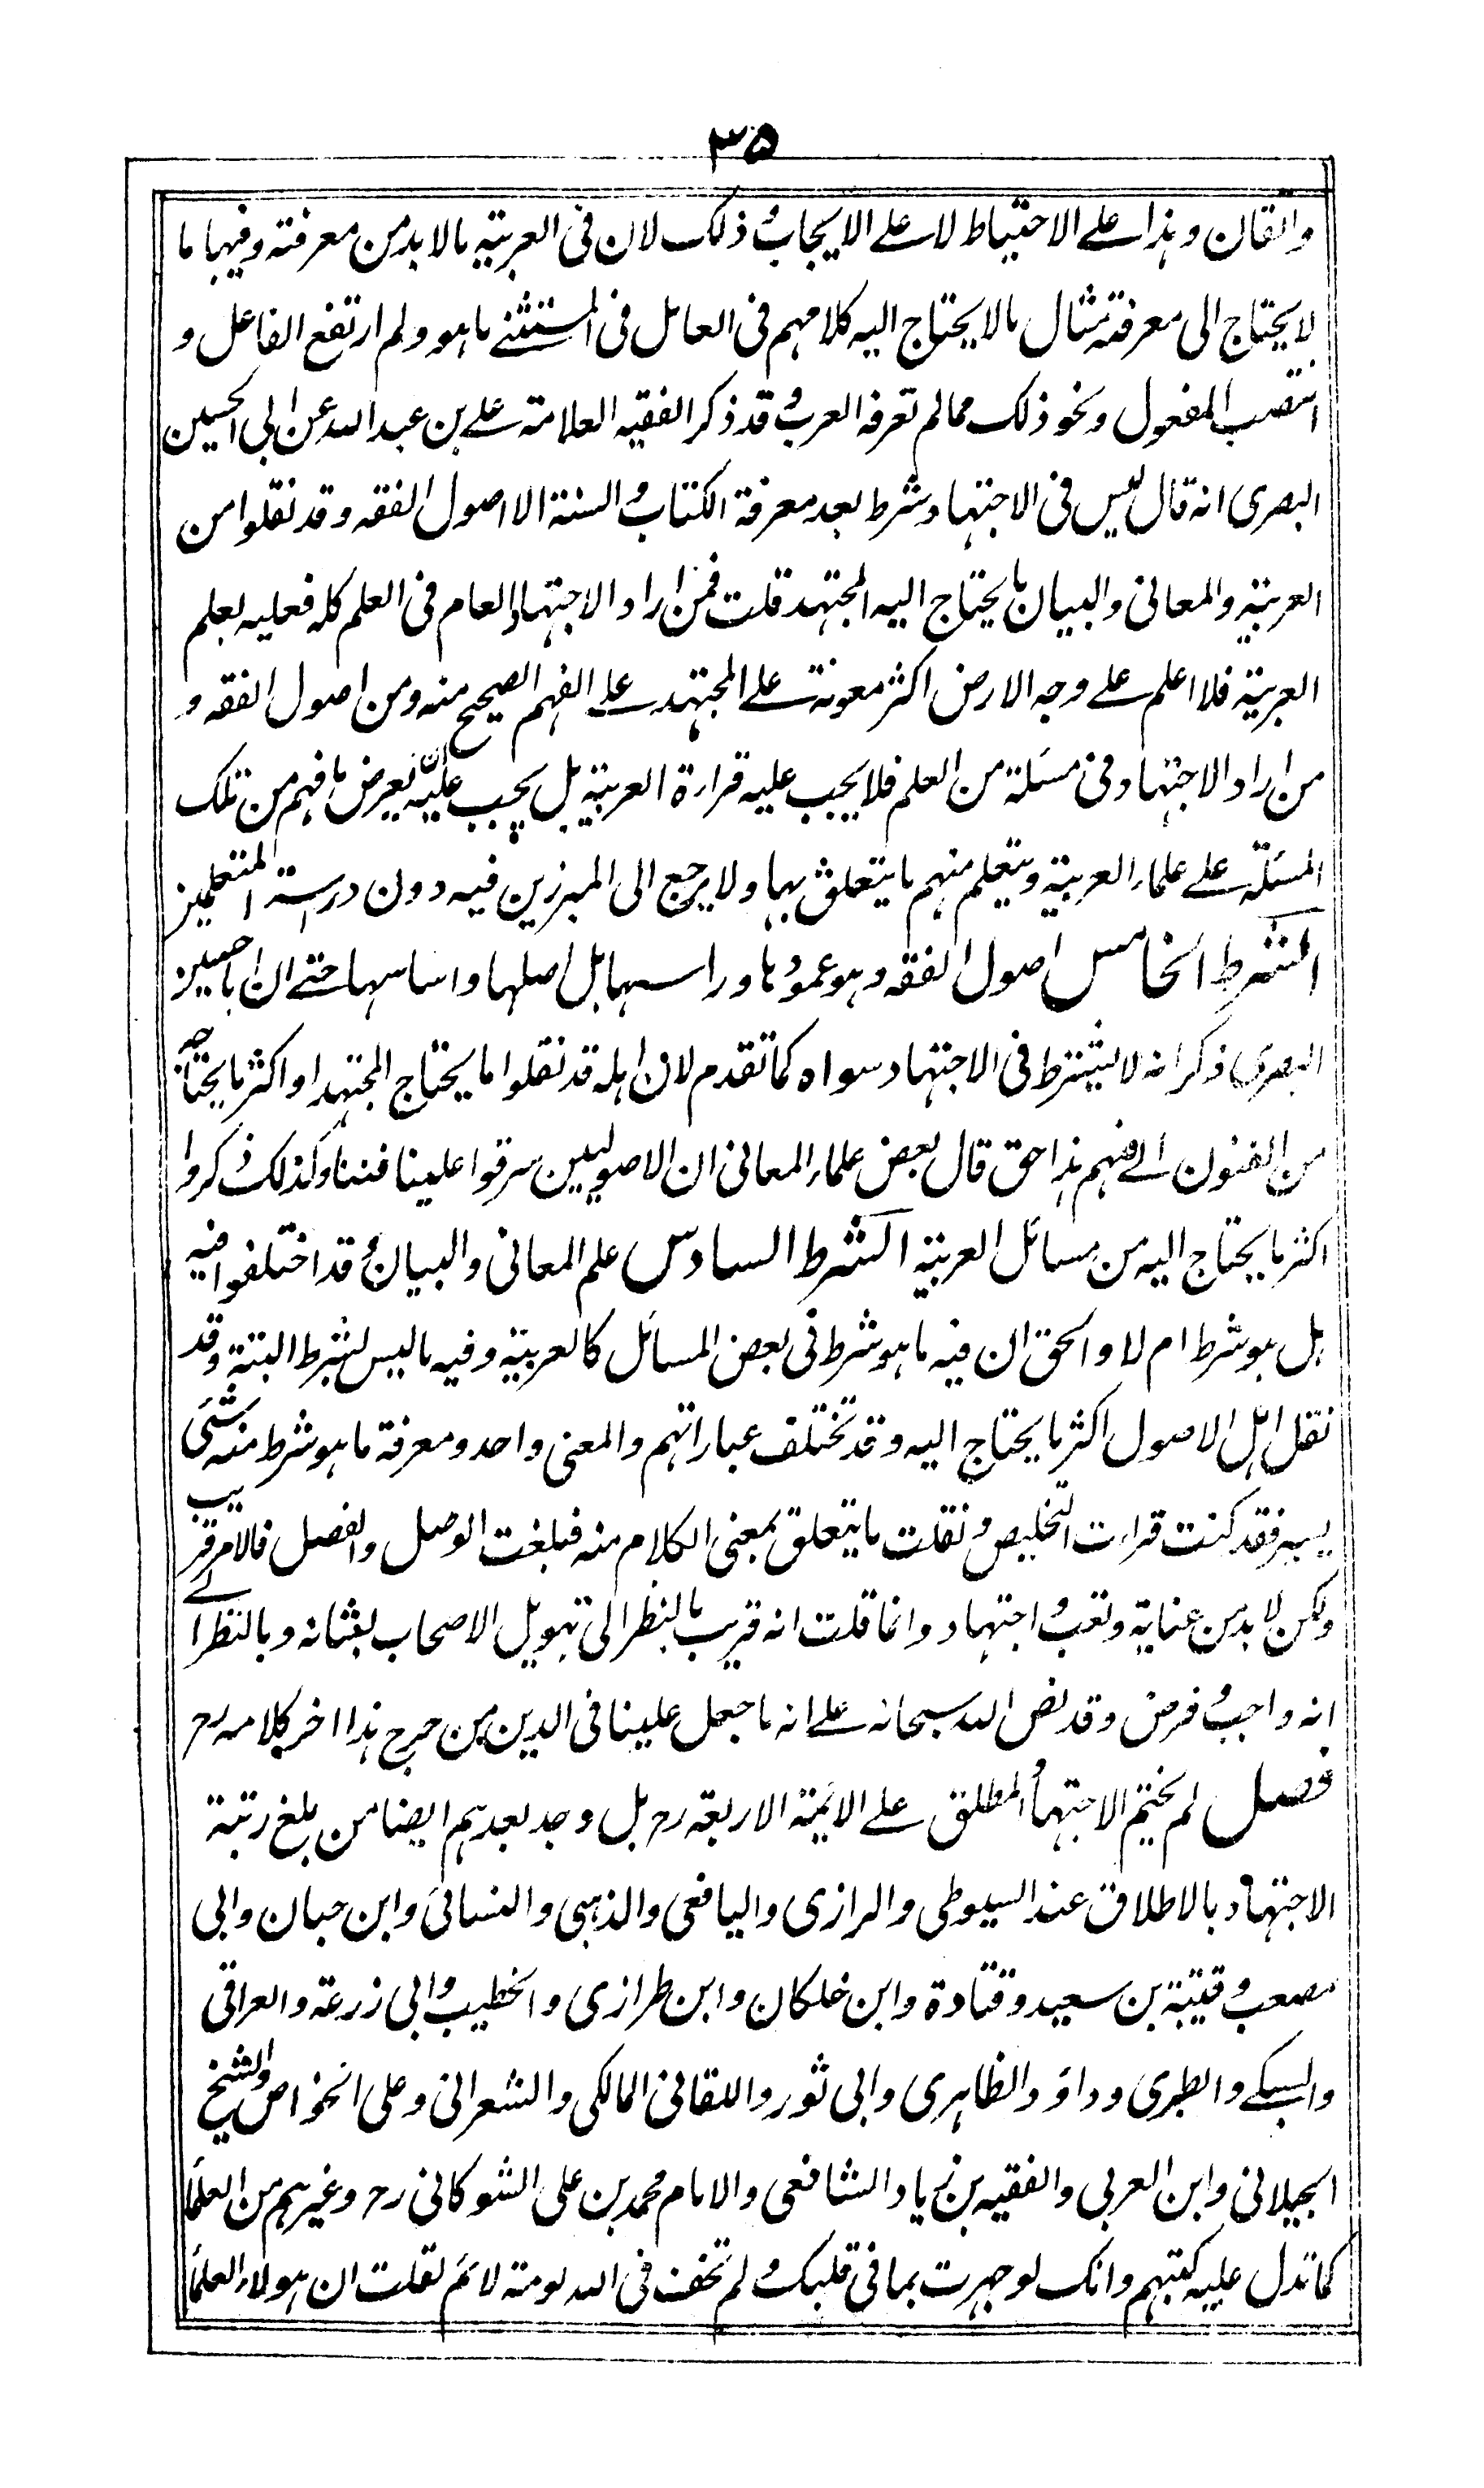 ٣٥
واتقان وهذا على الاحتياط لا على الايجاب وذلك لان فى العربية مالا بد من معرفته وفيها ما
لا يحتاج الى معرفته مثال مالا يحتاج اليه كلامهم فى العامل فى المستثنى ماهو ولم ارتفع الفاعل و
انتصب المفعول ونحو ذلك مما لم تعرفه العرب وقد ذكر الفقيه العلامة على بن عبد الله عن ابى الحسين
البصرى انه قال ليس فى الاجتهاد شرط بعد معرفة الكتاب والسنة الا اصول الفقه وقد نقلوا من
العربية والمعانى والبيان ما يحتاج اليه المجتهد قلت فمن اراد الاجتهاد العام فى العلم كله فعليه بعلم
العربية فلا اعلم على وجه الارض اكثر معونة على المجتهد على الفهم الصحيح منه ومن اصول الفقه و
من اراد الاجتهاد فى مسئلة من العلم فلا يجب عليه قراءة العربية بل يجب عليه ان يعرض ما فهم من تلك
المسئلة على علماء العربية ويتعلم منهم ما يتعلق بها ولا يرجع الى المبرزين فيه دون درسة المتعلمين
الشرط الخامس اصول الفقه وهو عمودها وراسها بل اصلها واساسها حتى ان ابا حسين
البصرى ذكر انه لا يشترط فى الاجتهاد سواه كما تقدم لان اهله قد نقلوا ما يحتاج المجتهد او اكثر ما يحتاجه
من الفنون الى فنهم هذا حق قال بعض علماء المعانى ان الاصوليين سرقوا علينا فننا وكذلك ذكروا
اكثر ما يحتاج اليه من مسائل العربية الشرط السادس علم المعانى والبيان وقد اختلفوا فيه
هل هو شرط ام لا والحق ان فيه ما هو شرط فى بعض المسائل كالعربية وفيه ما ليس بشرط البتة وقد
نقل اهل الاصول اكثر ما يحتاج اليه وقد تختلف عباراتهم والمعنى واحد ومعرفة ما هو شرط منه شئ
يسير فقد كنت قراءت التخليص ونقلت ما يتعلق بمعنى الكلام منه فبلغت الوصل والفصل فالامر قريب
ولكن لا بد من عناية وتعب واجتهاد وانما قلت انه قريب بالنظر الى تهويل الاصحاب بشانه وبالنظر الى
انه واجب وفرض وقد نص الله سبحانه على انه ما جعل علينا فى الدين من حرج هذا اخر كلامه رح
فصل لم يختم الاجتهاد المطلق على الائمة الاربعة رح بل وجد بعدهم ايضا من بلغ رتبة
الاجتهاد بالاطلاق عند السيوطى والرازى واليافعى والذهبى والنسائى وابن حبان وابى
مصعب وقتيبة بن سعيد وقتادة وابن خلكان وابن طرازى والخطيب وابى زرعة والعراقى
والسبكى والطبرى وداؤد الظاهرى وابى ثور واللقانى المالكى والشعرانى وعلى الخواص والشيخ
الجيلانى وابن العربى والفقيه بن زياد الشافعى والامام محمد بن على الشوكانى رح وغيرهم من العلماء
كما تدل عليه كتبهم وانك لو جهرت بما فى قلبك ولم تخف فى الله لومة لائم لقلت ان هولاء العلماء